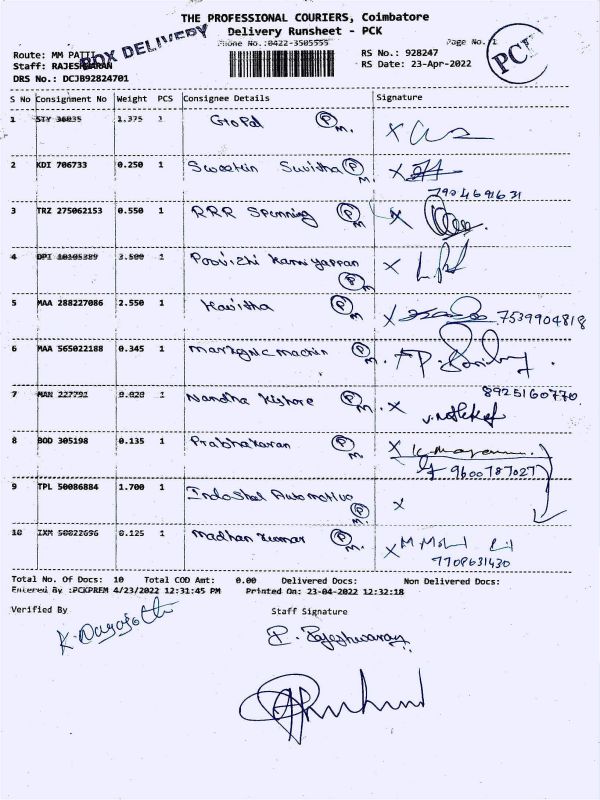 THE PROFESSIONAL COURIERS, Coimbatore
BOX DELIVERY
Delivery Runsheet - PCK
Phone No.:0422-3505555
Page No. 1
PCK
Route: MM PATTI
RS No.: 928247
Staff: RAJESHWARAN
RS Date: 23-Apr-2022
DRS No.: DCJB92824701
S No Consignment No Weight PCS Consignee Details Signature
1 STY 36035 1.375 1 Gopal P M.
2 KDI 706733 0.250 1 Sweetin Suvitha P M
7904691631
3 TRZ 275062153 0.550 1 RRR Spinning P M
4 DPI 10105389 3.500 1 P M
5 MAA 288227086 2.550 1 Kavitha P M 7539904818
6 MAA 565022188 0.345 1 P M.
7 MAN 227791 0.020 1 Nandha Kishore P M. 8925160770
8 BOD 305198 0.135 1 Prabhakaran P M.
9600787027
9 TPL 50086884 1.700 1 Indoshel Automotive P M.
10 IXM 50022696 0.125 1 Madhan Kumar P M.
7708631430
Total No. Of Docs: 10 Total COD Amt: 0.00 Delivered Docs: Non Delivered Docs:
Entered By :PCKPREM 4/23/2022 12:31:45 PM Printed On: 23-04-2022 12:32:18
Verified By Staff Signature
P. Rajeshwaran